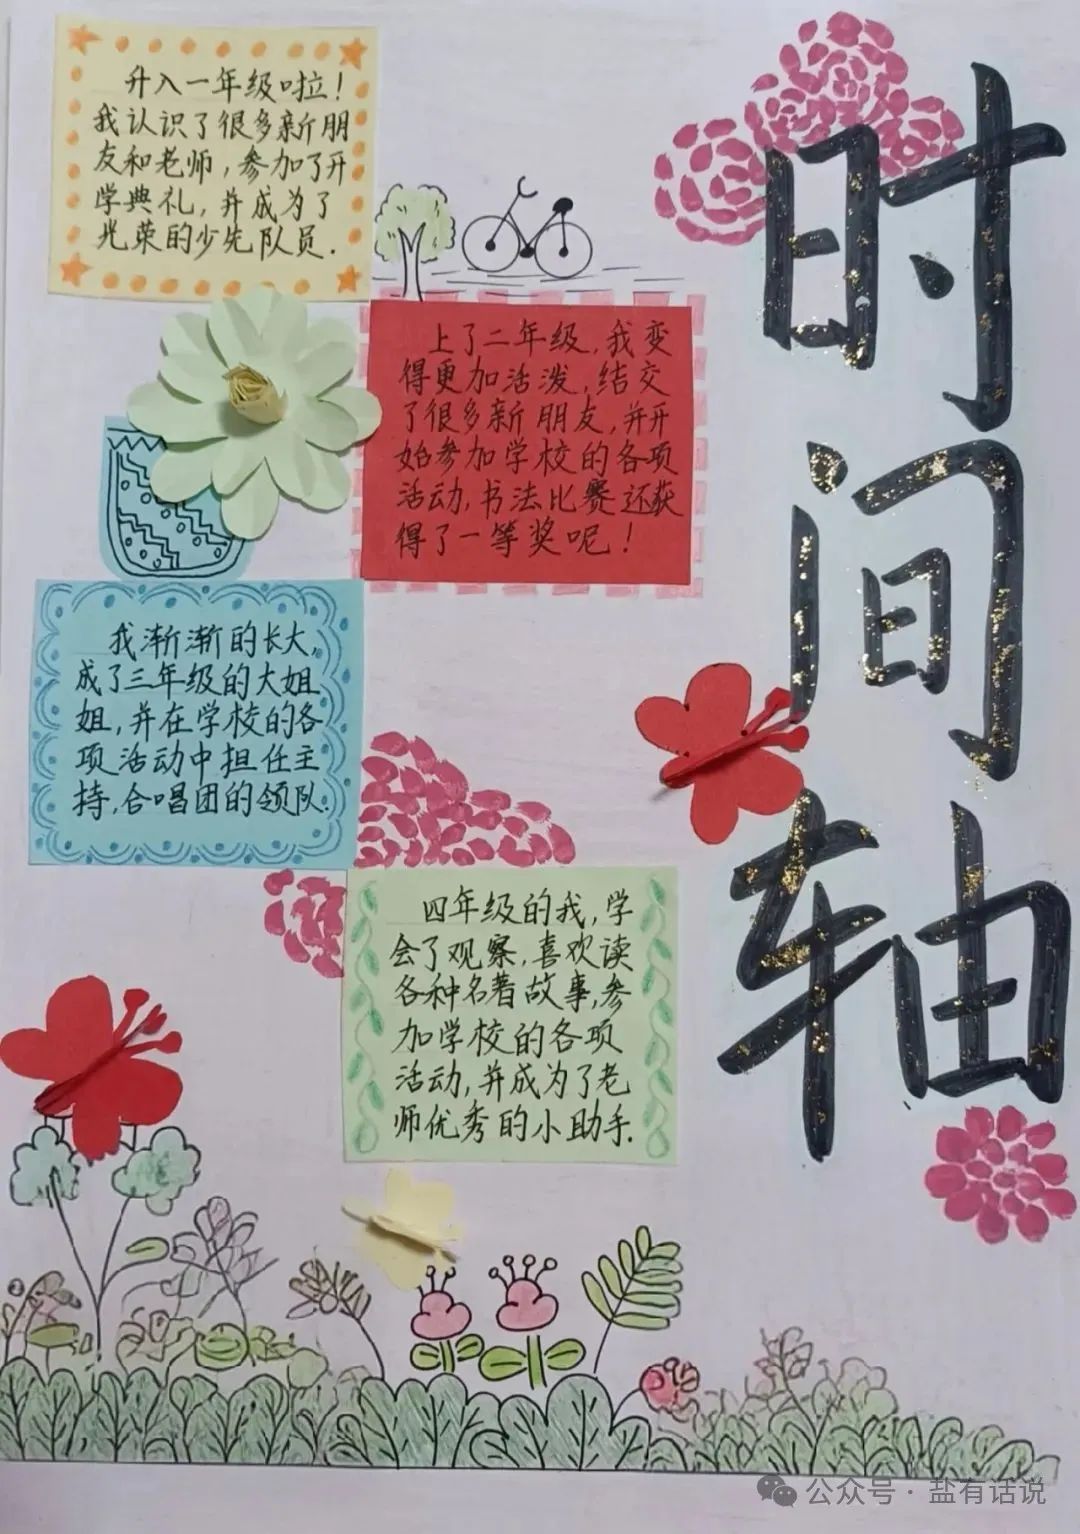 时间轴
升入一年级啦！
我认识了很多新朋
友和老师，参加了开
学典礼，并成为了
光荣的少先队员.
上了二年级，我变
得更加活泼，结交
了很多新朋友，并开
始参加学校的各项
活动，书法比赛还获
得了一等奖呢！
我渐渐的长大，
成了三年级的大姐
姐，并在学校的各
项活动中担任主
持，合唱团的领队.
四年级的我，学
会了观察，喜欢读
各种名著故事，参
加学校的各项
活动，并成为了老
师优秀的小助手.
公众号·盐有话说